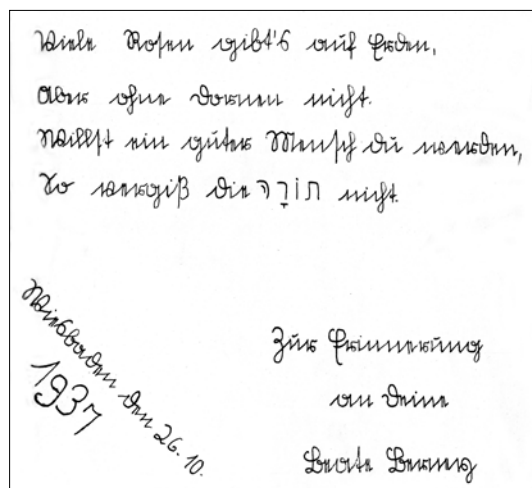 Viele Rosen gibt's auf Erden,
Aber ohne Dornen nicht.
Willst ein guter Mensch du werden,
So vergiß die תּוֹרָה nicht.
Wiesbaden den 26.10.
1937
Zur Erinnerung
an Deine
Beate